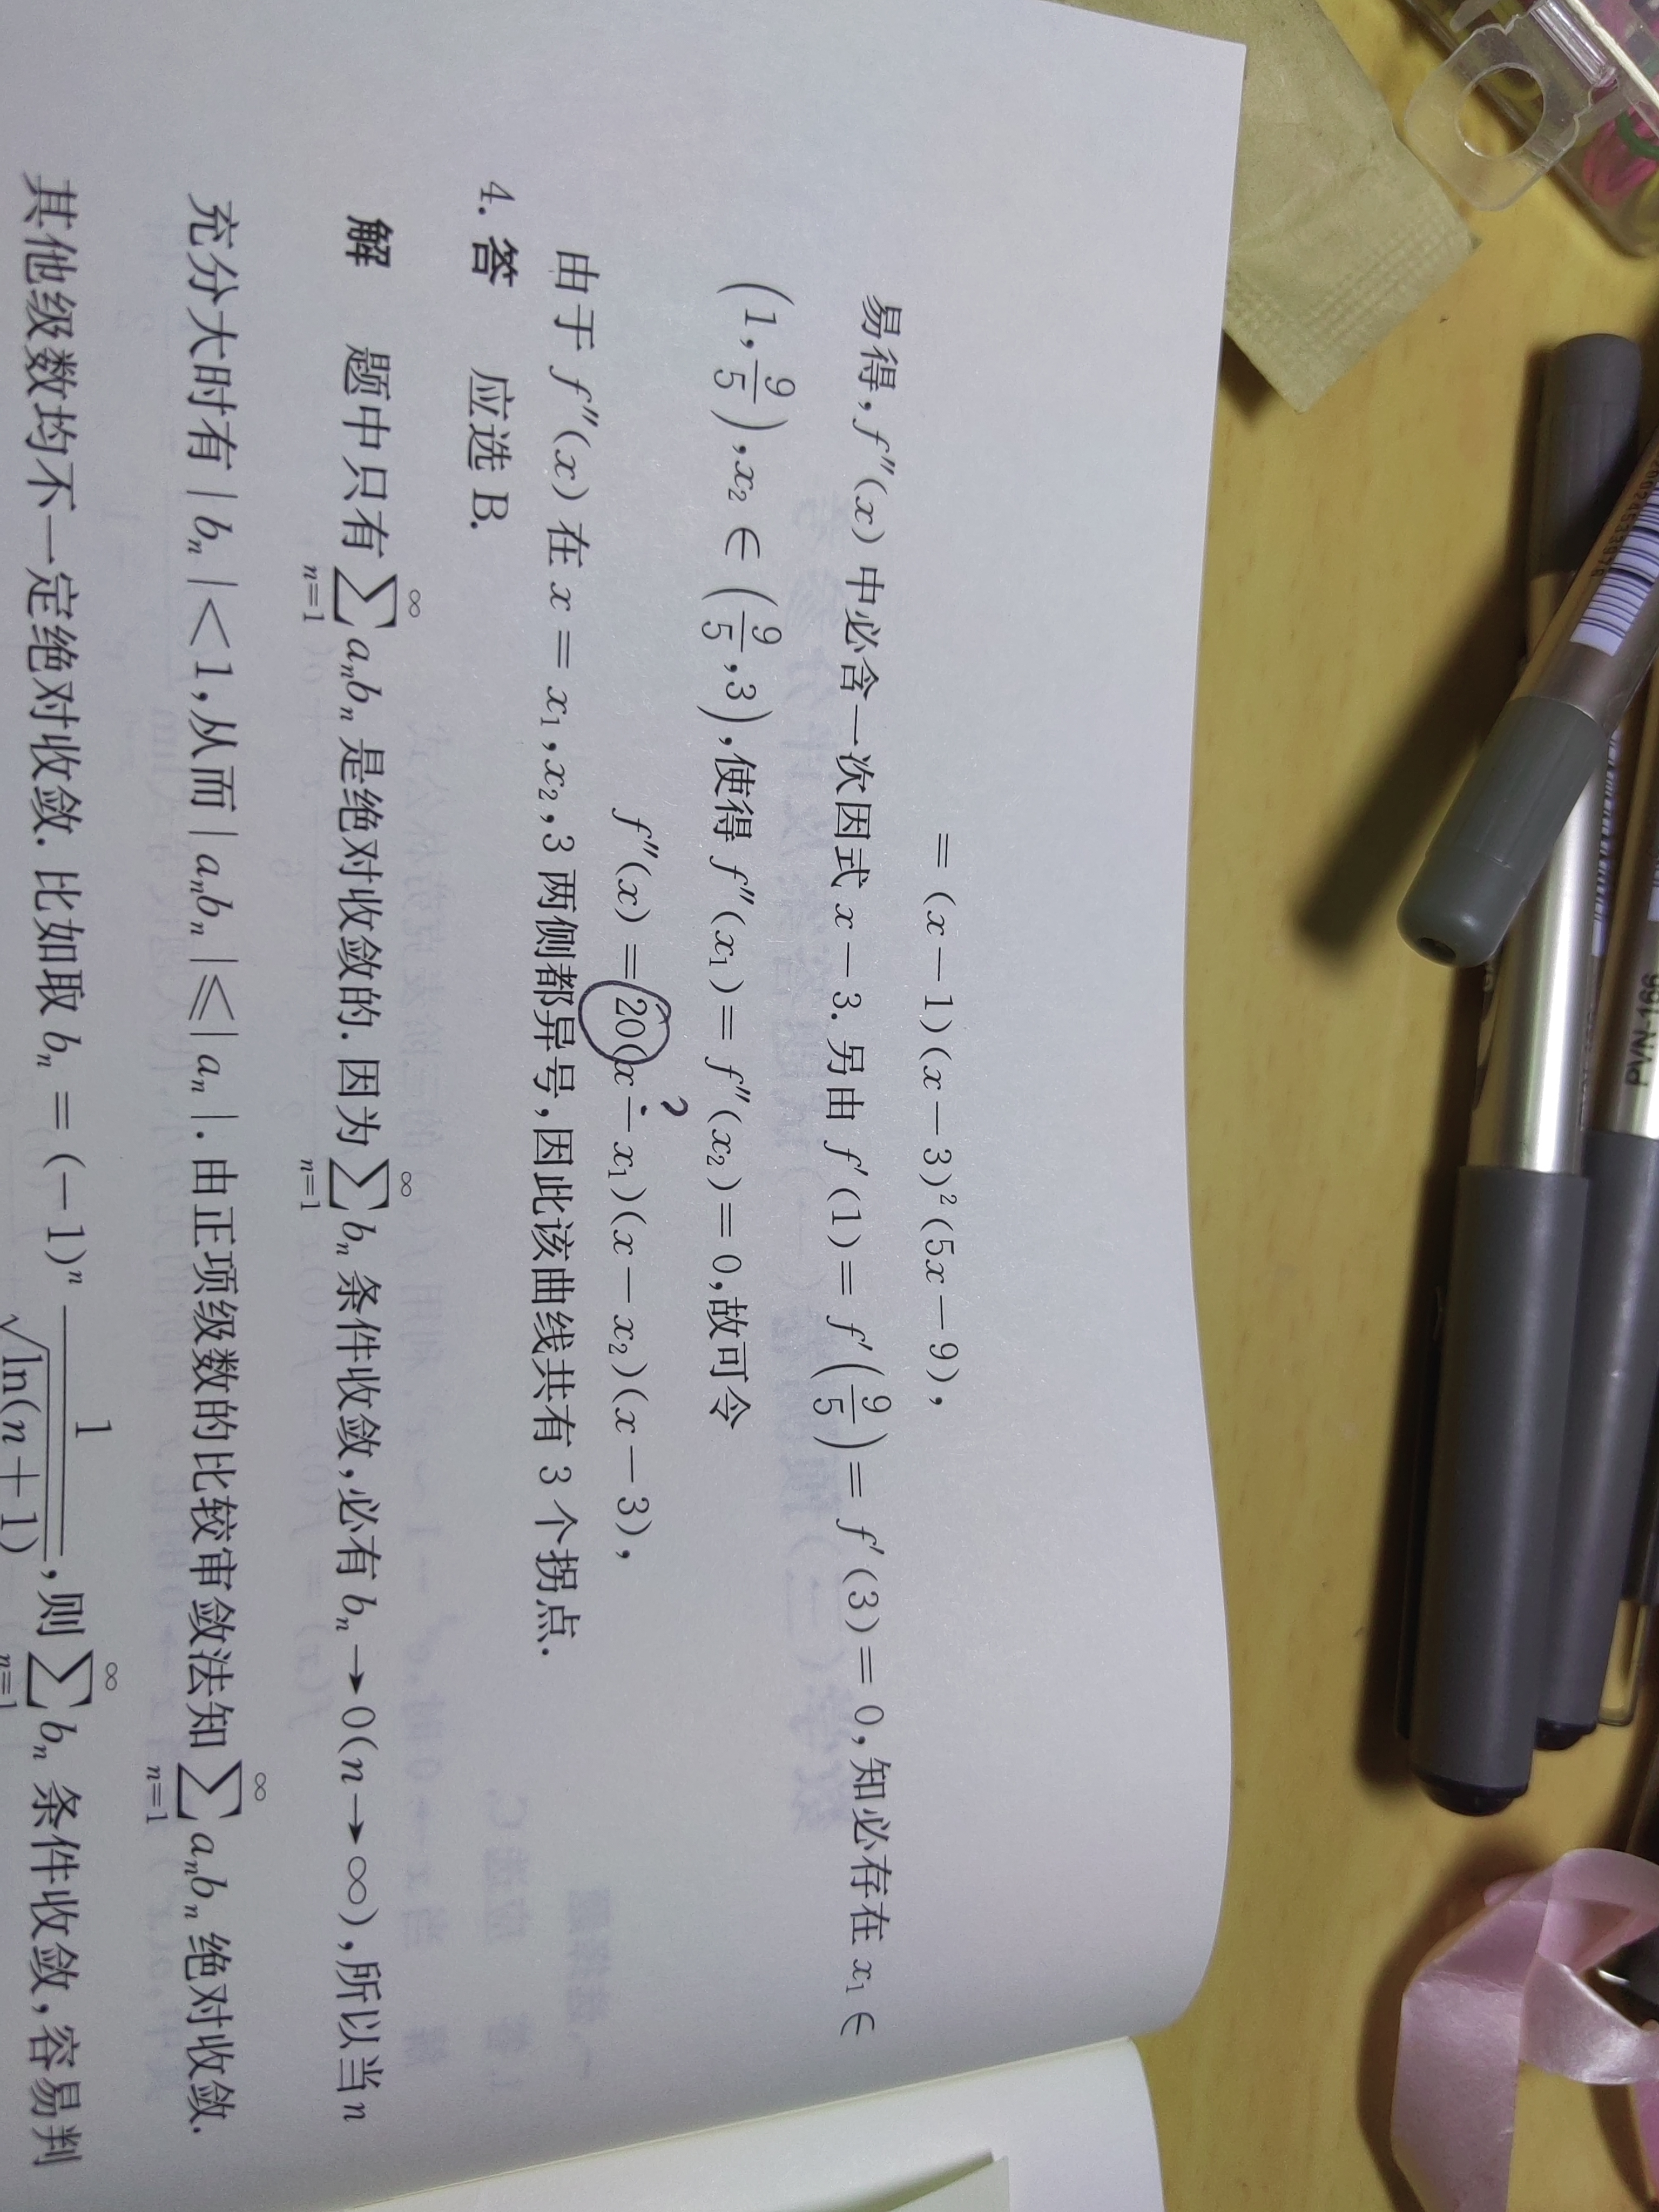 = (x－1)(x－3)²(5x－9),
易得, f″(x) 中必含一次因式 x－3. 另由 f′(1) = f′(9/5) = f′(3) = 0, 知必存在 x₁ ∈
(1, 9/5), x₂ ∈ (9/5, 3), 使得 f″(x₁) = f″(x₂) = 0, 故可令
f″(x) = 20(x－x₁)(x－x₂)(x－3),
?
由于 f″(x) 在 x = x₁, x₂, 3 两侧都异号, 因此该曲线共有 3 个拐点.
4. 答 应选 B.
解 题中只有 ∑_{n=1}^{∞} aₙbₙ 是绝对收敛的. 因为 ∑_{n=1}^{∞} bₙ 条件收敛, 必有 bₙ → 0(n → ∞), 所以当 n
充分大时有 | bₙ | < 1, 从而 | aₙbₙ | ⩽ | aₙ |. 由正项级数的比较审敛法知 ∑_{n=1}^{∞} aₙbₙ 绝对收敛.
其他级数均不一定绝对收敛. 比如取 bₙ = (－1)ⁿ 1/√ln(n＋1), 则 ∑_{n=1}^{∞} bₙ 条件收敛, 容易判
PVN-166